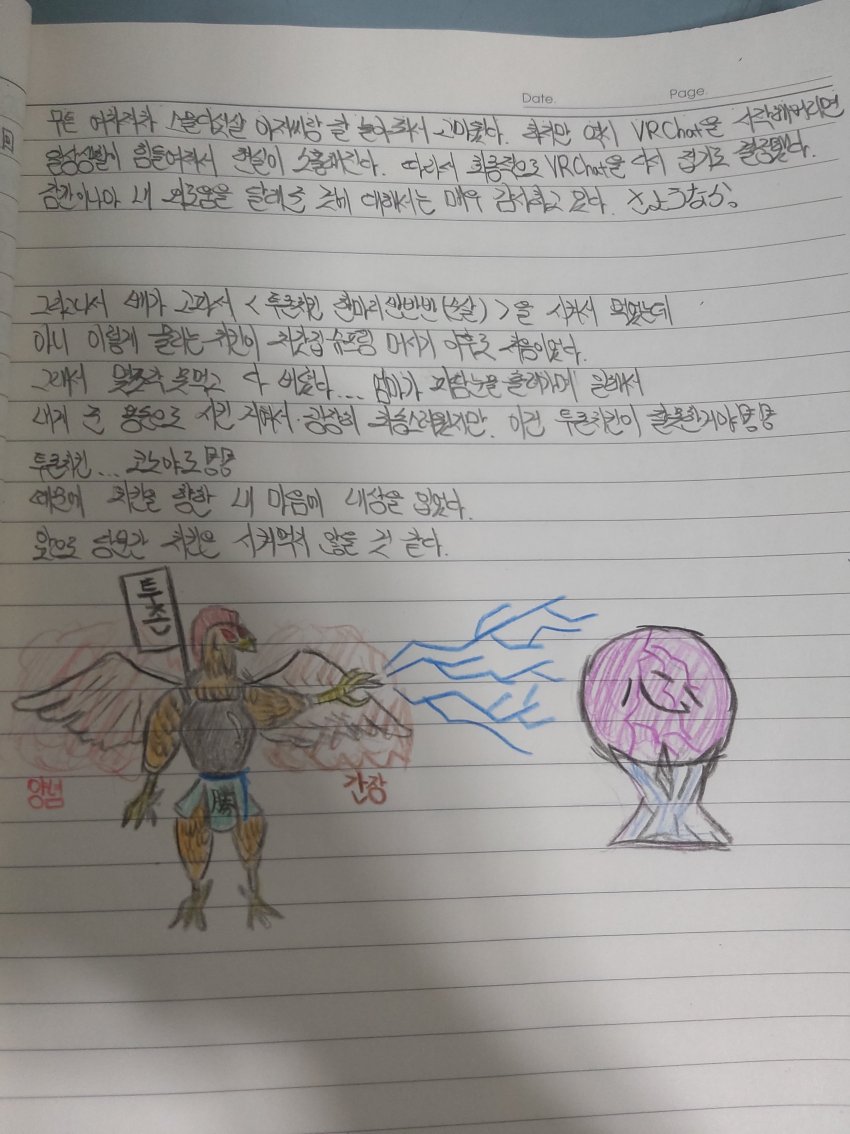 Date. Page.
무튼 어차저차 스물다섯살 아저씨랑 잘 놀아줘서 고마웠다. 하지만 역시 VRChat을 시작해버리면
일상생활이 힘들어져서 현실이 소홀해진다. 따라서 최종적으로 VRChat을 다시 접기로 결정했다.
잠깐이나마 내 외로움을 달래준 것에 대해서는 매우 감사하고 있다. さようなら。
그리고나서 배가 고파서 <투존치킨 한마리반반(순살)>을 시켜서 먹었는데
아니 이렇게 물리는 치킨이 치킷집 슈프림 머시기 이후로 처음이었다.
그래서 몇조각 못먹고 다 버렸다... 엄마가 피땀눈물흘려가며 일해서
내게 준 용돈으로 시킨 거여서 굉장히 죄송스러웠지만. 이건 투존치킨이 잘못한거야
투존치킨... 코노야로
때문에 치킨을 향한 내 마음에 내상을 입었다.
앞으로 당분간 치킨은 시켜먹지 않을 것 같다.
투존
心
양념
간장
勝